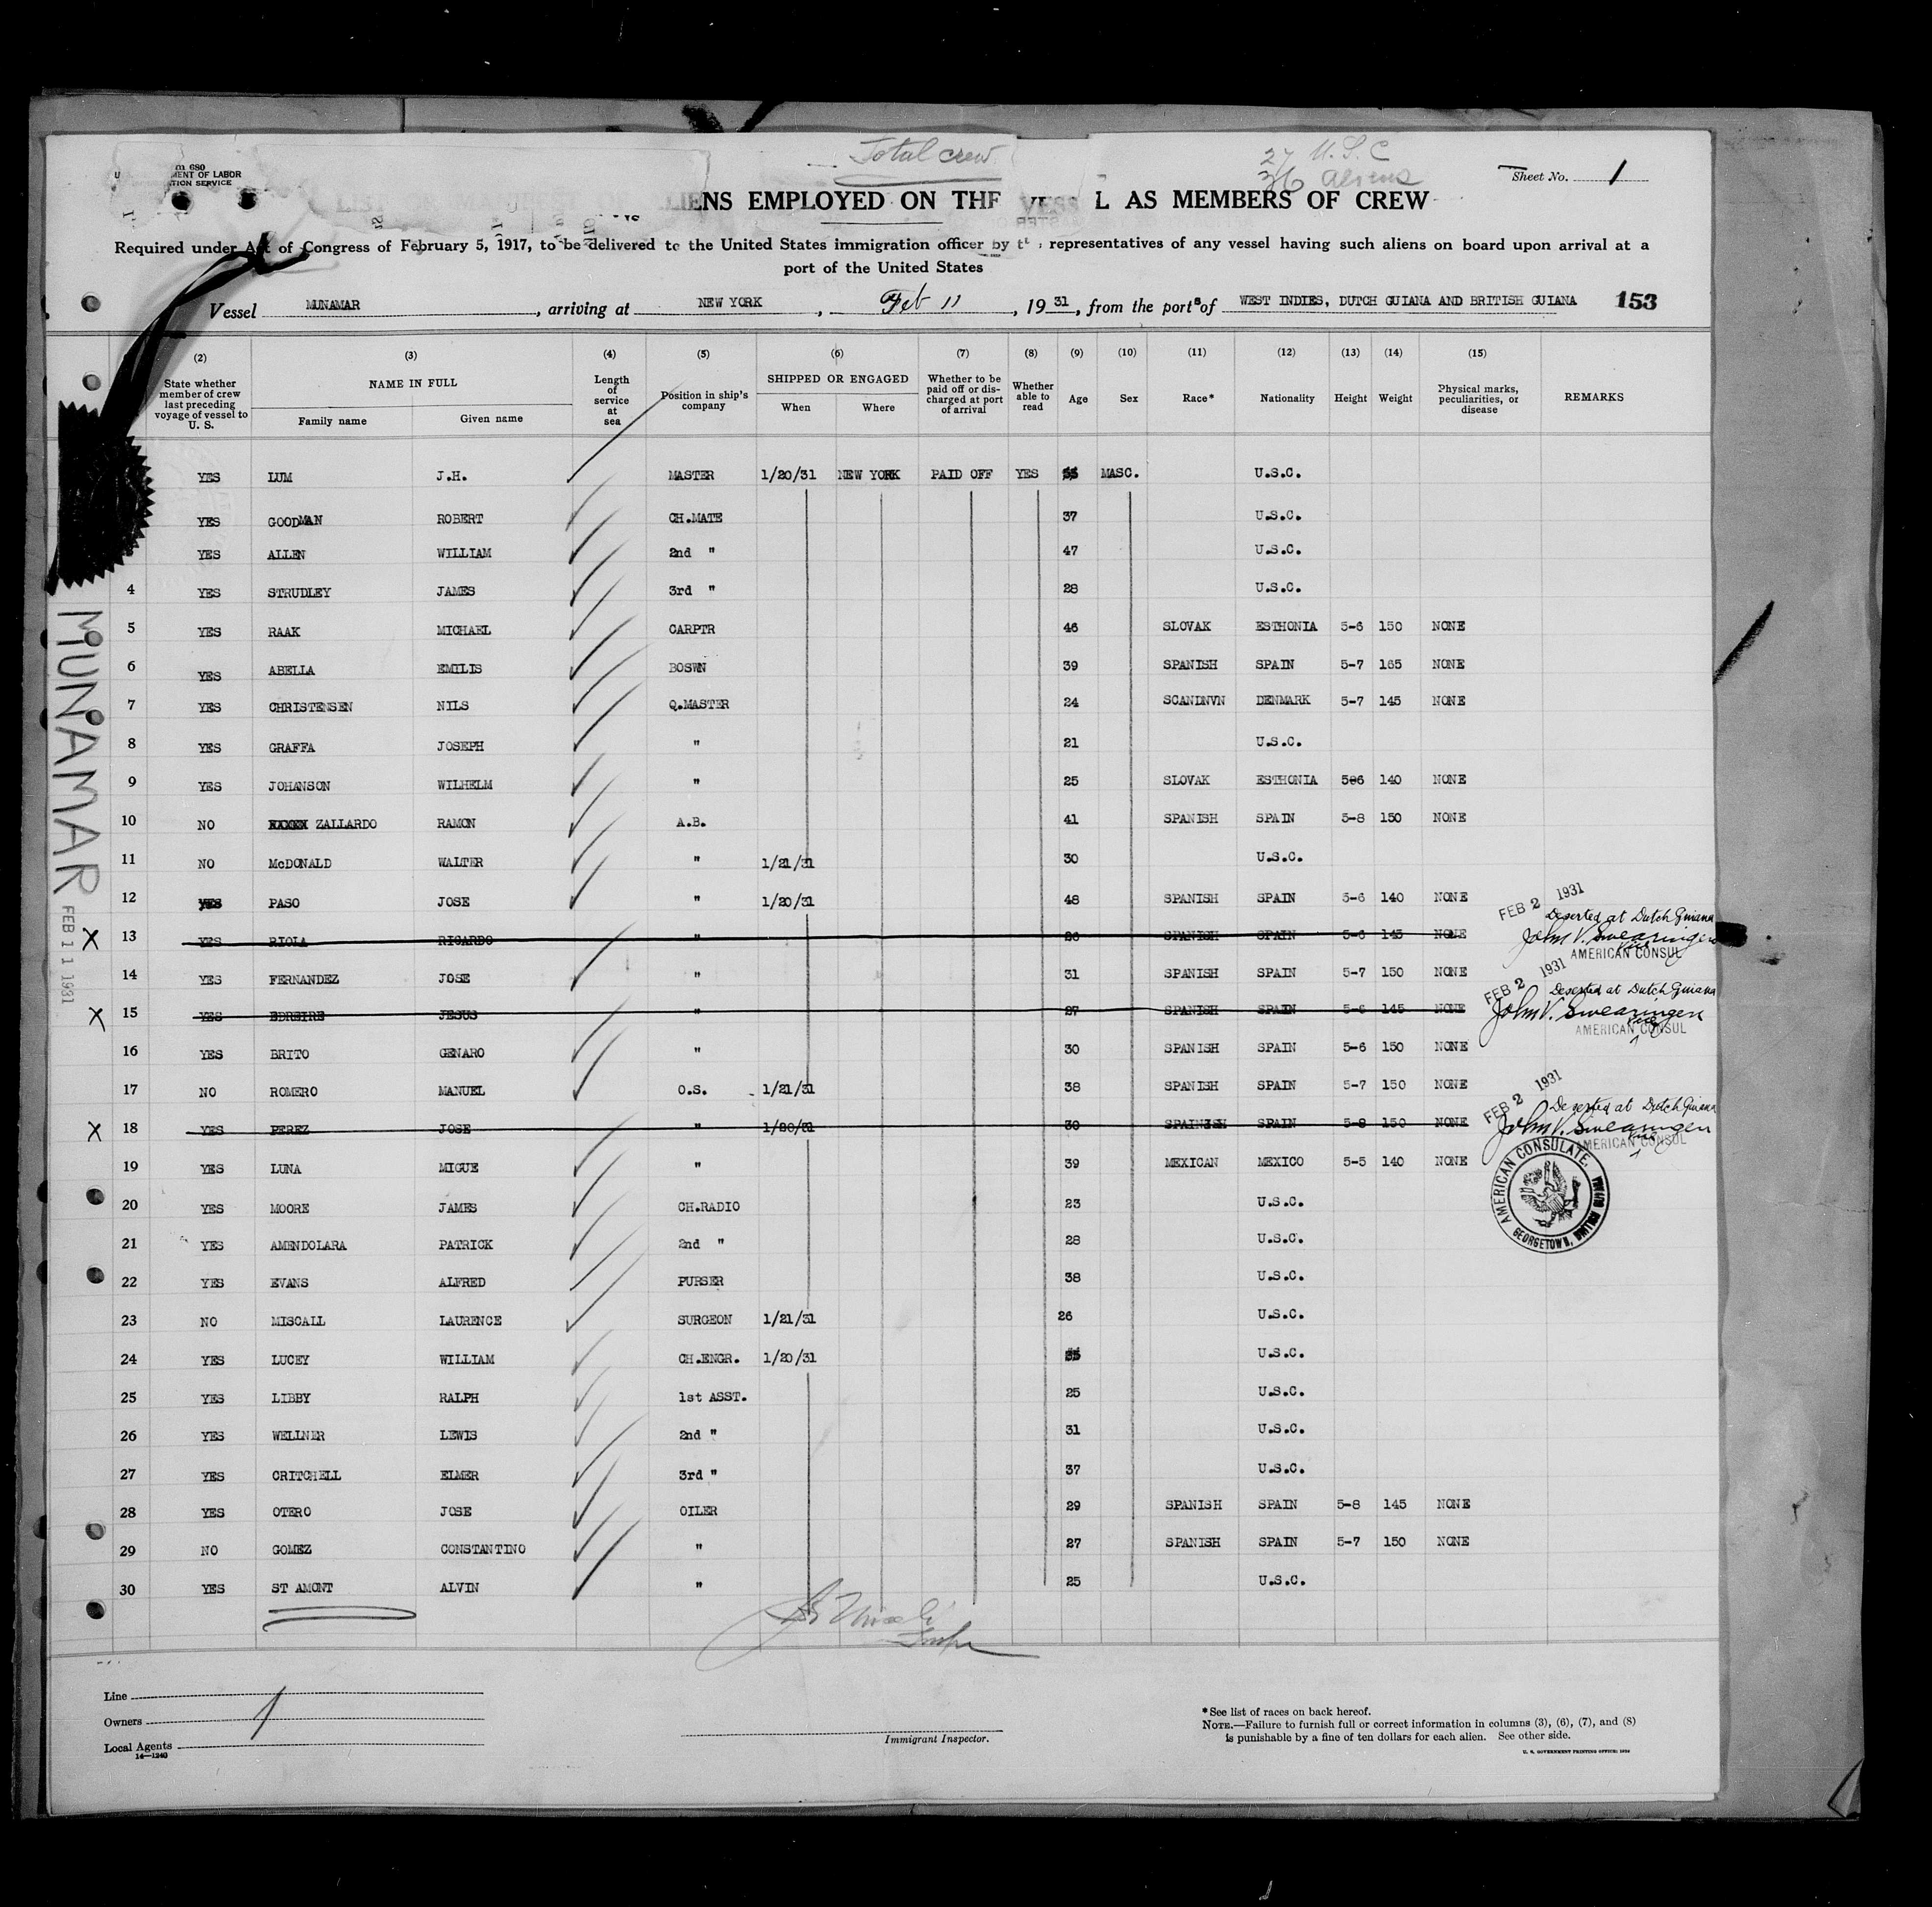 Total crew
27 U.S.C
36 aliens
Sheet No. 1
680
MENT OF LABOR
TION SERVICE
LIENS EMPLOYED ON THE VESSEL AS MEMBERS OF CREW
Required under Act of Congress of February 5, 1917, to be delivered to the United States immigration officer by the representatives of any vessel having such aliens on board upon arrival at a
port of the United States
Vessel MUNAMAR, arriving at NEW YORK, Feb 11, 1931, from the ports of WEST INDIES, DUTCH GUIANA AND BRITISH GUIANA 153
(2) (3) (4) (5) (6) (7) (8) (9) (10) (11) (12) (13) (14) (15)
State whether member of crew last preceding voyage of vessel to U. S. | NAME IN FULL | Family name | Given name | Length of service at sea | Position in ship's company | SHIPPED OR ENGAGED | When | Where | Whether to be paid off or discharged at port of arrival | Whether able to read | Age | Sex | Race* | Nationality | Height | Weight | Physical marks, peculiarities, or disease | REMARKS
YES LUM J.H. MASTER 1/20/31 NEW YORK PAID OFF YES MASC. U.S.C.
YES GOODMAN ROBERT CH.MATE 37 U.S.C.
YES ALLEN WILLIAM 2nd " 47 U.S.C.
4 YES STRUDLEY JAMES 3rd " 28 U.S.C.
5 YES RAAK MICHAEL CARPTR 46 SLOVAK ESTHONIA 5-6 150 NONE
6 YES ABELLA EMILIS BOSWN 39 SPANISH SPAIN 5-7 165 NONE
7 YES CHRISTENSEN NILS Q.MASTER 24 SCANDNVN DENMARK 5-7 145 NONE
8 YES GRAFFA JOSEPH " 21 U.S.C.
9 YES JOHANSON WILHELM " 25 SLOVAK ESTHONIA 506 140 NONE
10 NO ZALLARDO RAMON A.B. 41 SPANISH SPAIN 5-8 150 NONE
11 NO McDONALD WALTER " 1/21/31 30 U.S.C.
12 YES PASO JOSE " 1/20/31 48 SPANISH SPAIN 5-6 140 NONE
FEB 2 1931
Deserted at Dutch Guiana
X 13 YES RIOLA RICARDO " 26 SPANISH SPAIN 5-6 145 NONE John V. Swearingen
Vice
AMERICAN CONSUL
14 YES FERNANDEZ JOSE " 31 SPANISH SPAIN 5-7 150 NONE
FEB 2 1931
Deserted at Dutch Guiana
X 15 YES EDREIRE JESUS " 27 SPANISH SPAIN 5-6 145 NONE John V. Swearingen
Vice
AMERICAN CONSUL
16 YES BRITO GENARO " 30 SPANISH SPAIN 5-6 150 NONE
17 NO ROMERO MANUEL O.S. 1/21/31 38 SPANISH SPAIN 5-7 150 NONE
FEB 2 1931
Deserted at Dutch Guiana
X 18 YES PEREZ JOSE " 1/20/31 30 SPAINISH SPAIN 5-8 150 NONE John V. Swearingen
Vice
AMERICAN CONSUL
19 YES LUNA MIGUE " 39 MEXICAN MEXICO 5-5 140 NONE
AMERICAN CONSULATE,
GEORGETOWN, BRITISH GUIANA
20 YES MOORE JAMES CH.RADIO 23 U.S.C.
21 YES AMENDOLARA PATRICK 2nd " 28 U.S.C.
22 YES EVANS ALFRED PURSER 38 U.S.C.
23 NO MISCALL LAURENCE SURGEON 1/21/31 26 U.S.C.
24 YES LUCEY WILLIAM CH.ENGR. 1/20/31 U.S.C.
25 YES LIBBY RALPH 1st ASST. 25 U.S.C.
26 YES WELLNER LEWIS 2nd " 31 U.S.C.
27 YES CRITCHELL ELMER 3rd " 37 U.S.C.
28 YES OTERO JOSE OILER 29 SPANISH SPAIN 5-8 145 NONE
29 NO GOMEZ CONSTANTINO " 27 SPANISH SPAIN 5-7 150 NONE
30 YES ST AMONT ALVIN " 25 U.S.C.
MUNAMAR FEB 11 1931
Line
Owners
Local Agents
14—1240
Immigrant Inspector.
*See list of races on back hereof.
NOTE.—Failure to furnish full or correct information in columns (3), (6), (7), and (8)
is punishable by a fine of ten dollars for each alien. See other side.
U. S. GOVERNMENT PRINTING OFFICE: